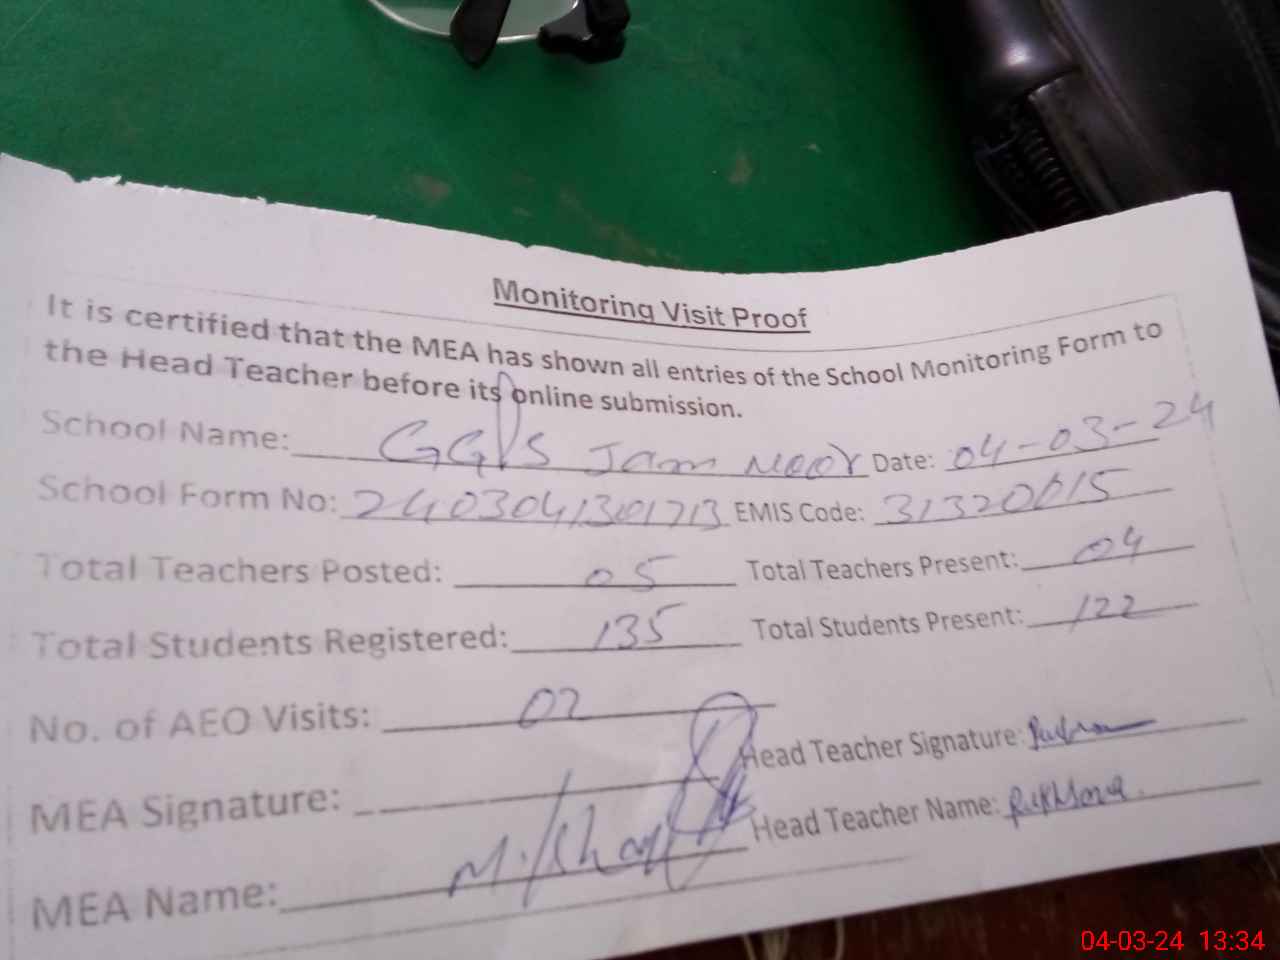 Monitoring Visit Proof
It is certified that the MEA has shown all entries of the School Monitoring Form to
the Head Teacher before its online submission.
School Name: GGPS Jam Noor Date: 04-03-24
School Form No: 2403041301713 EMIS Code: 31320615
Total Teachers Posted: 05 Total Teachers Present: 04
Total Students Registered: 135 Total Students Present: 122
No. of AEO Visits: 02
Head Teacher Signature:
MEA Signature:
Head Teacher Name: Rukhsana
MEA Name:
04-03-24 13:34